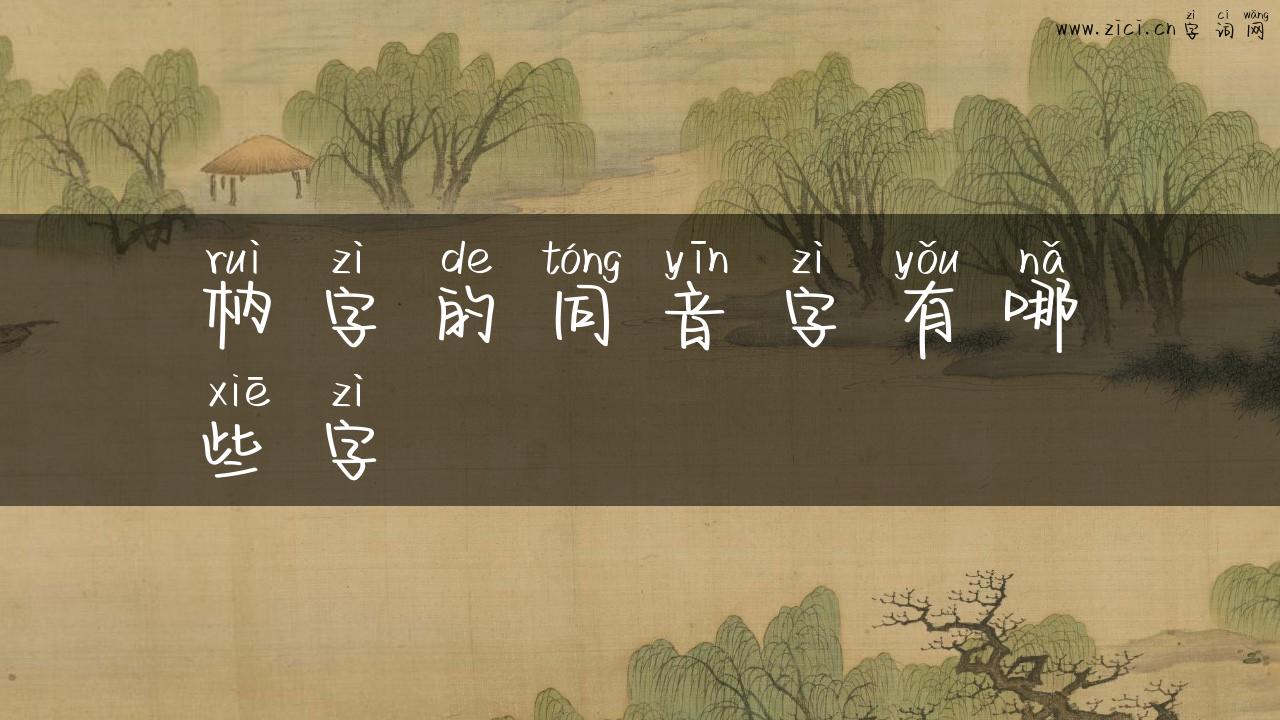 zì cí wǎng
www.zici.cn 字词网
ruì zì de tóng yīn zì yǒu nǎ
枘字的同音字有哪
xiē zì
些字